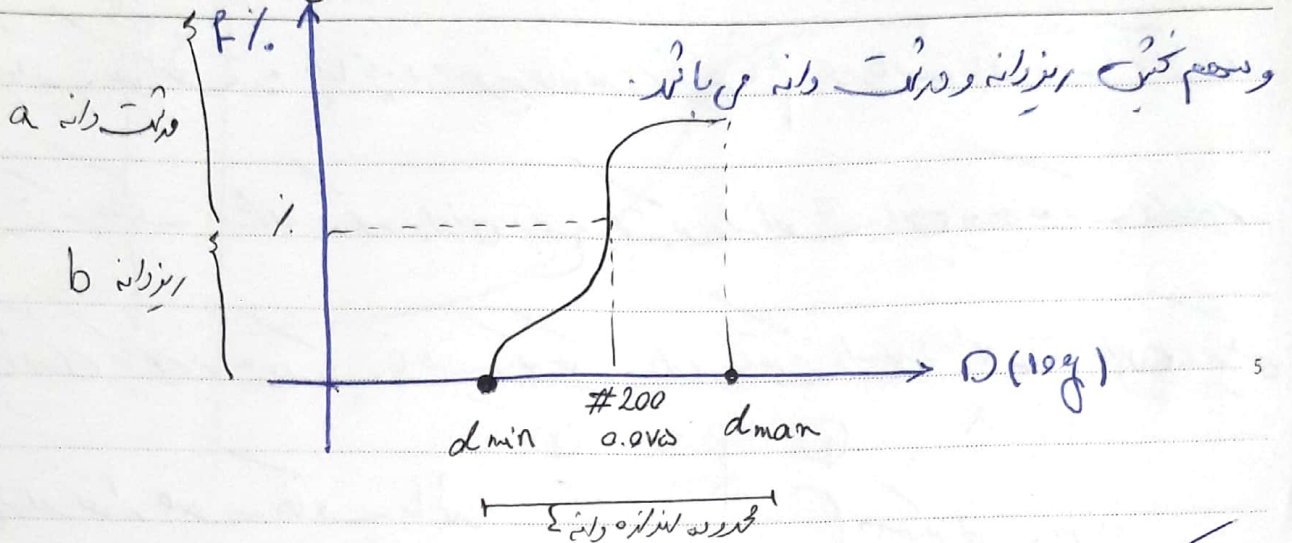 F%
و سهم بخش ریزدانه و درشت دانه می باشد.
درشت دانه a
%
ریزدانه b
D (log)
5
#200
0.075
d min
d max
محدوده اندازه دانه ها